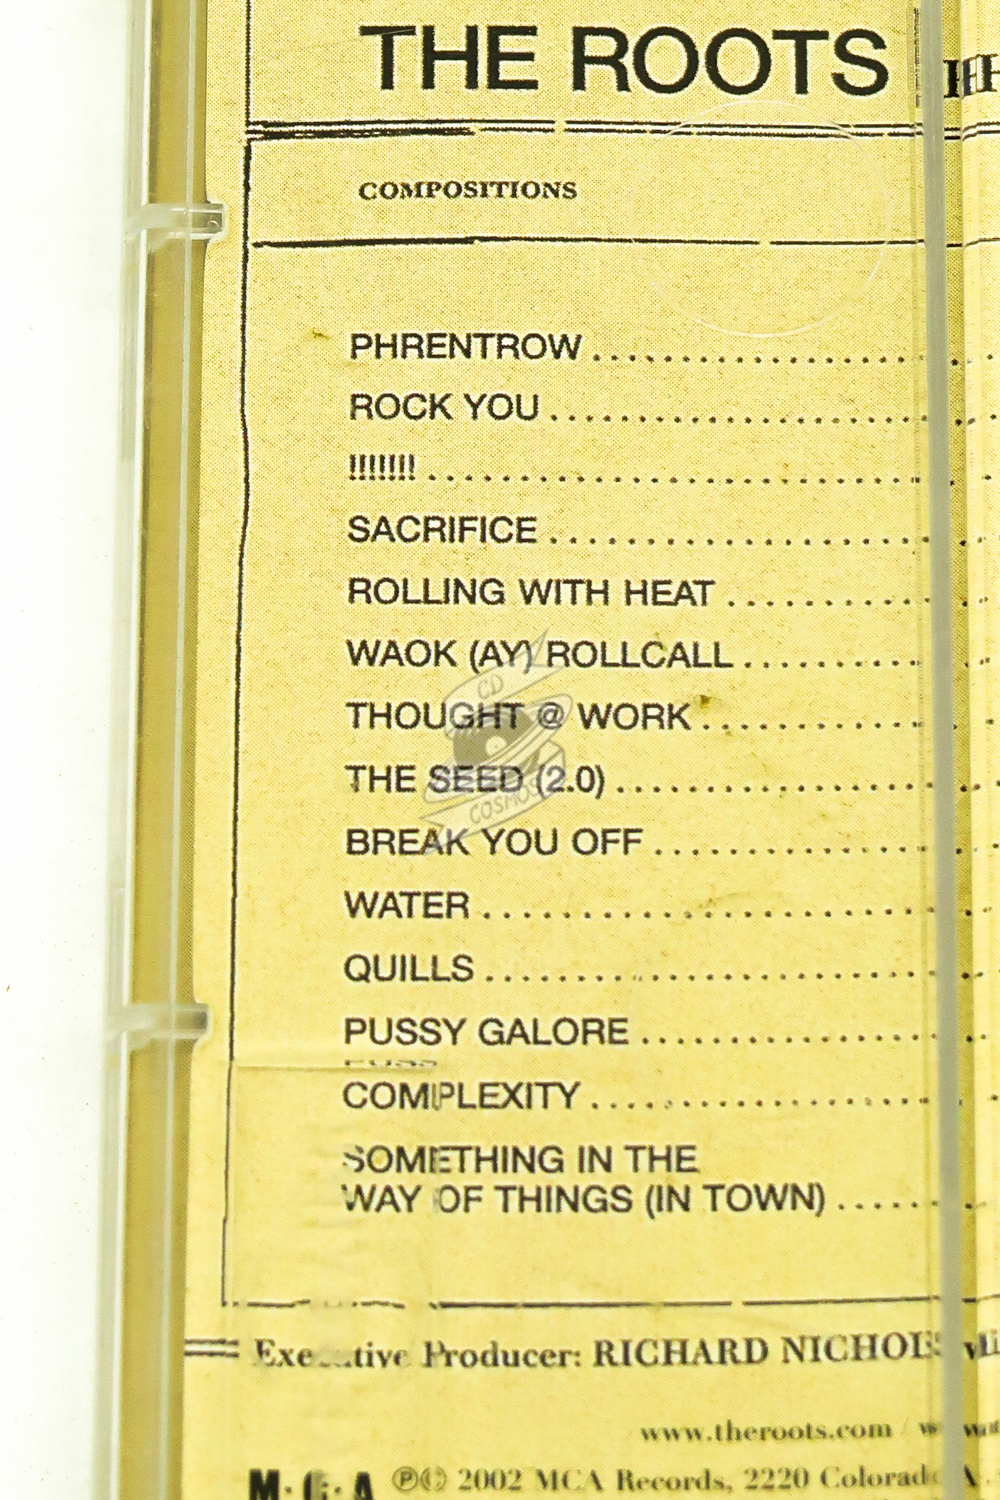 THE ROOTS
COMPOSITIONS
PHRENTROW
ROCK YOU
!!!!!!!
SACRIFICE
ROLLING WITH HEAT
WAOK (AY) ROLLCALL
THOUGHT @ WORK
THE SEED (2.0)
BREAK YOU OFF
WATER
QUILLS
PUSSY GALORE
COMPLEXITY
SOMETHING IN THE
WAY OF THINGS (IN TOWN)
Producer: RICHARD
www.theroots.com
M·C·A ℗© 2002 MCA Records, 2220
CD
COSMOS